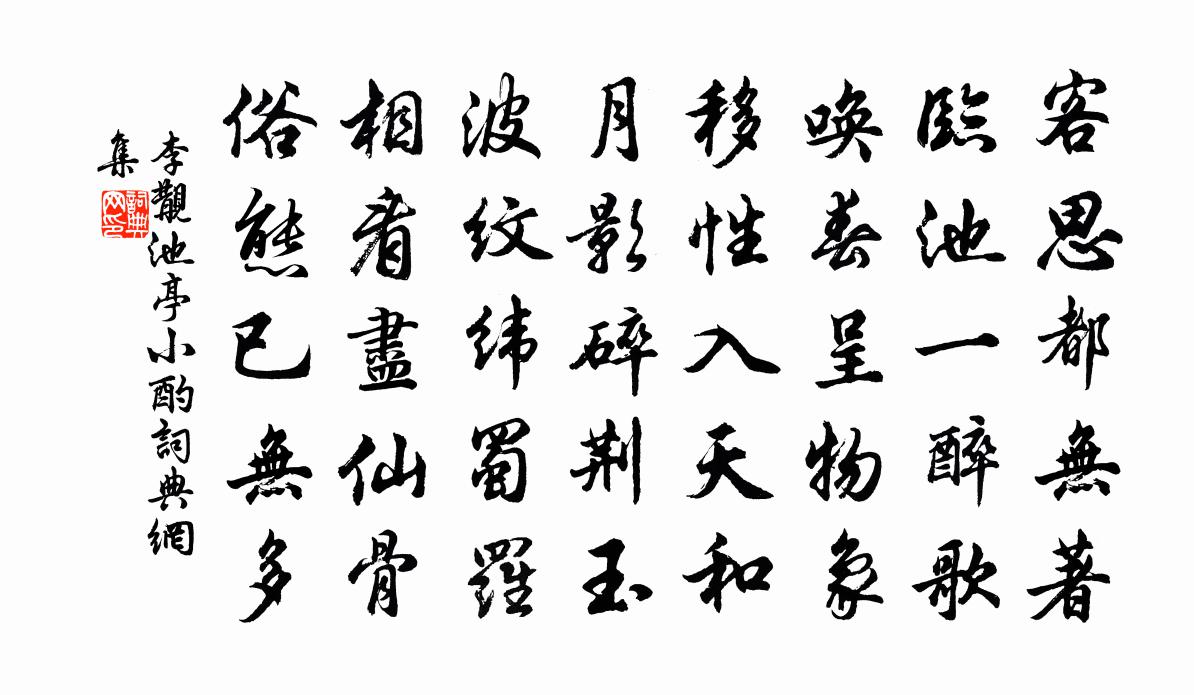 客思都無著
臨池一醉歌
喚春呈物象
移性入天和
月影碎荆玉
波紋緯蜀羅
相看盡仙骨
俗態已無多
李覯池亭小酌詞典網
集
詞典
网印